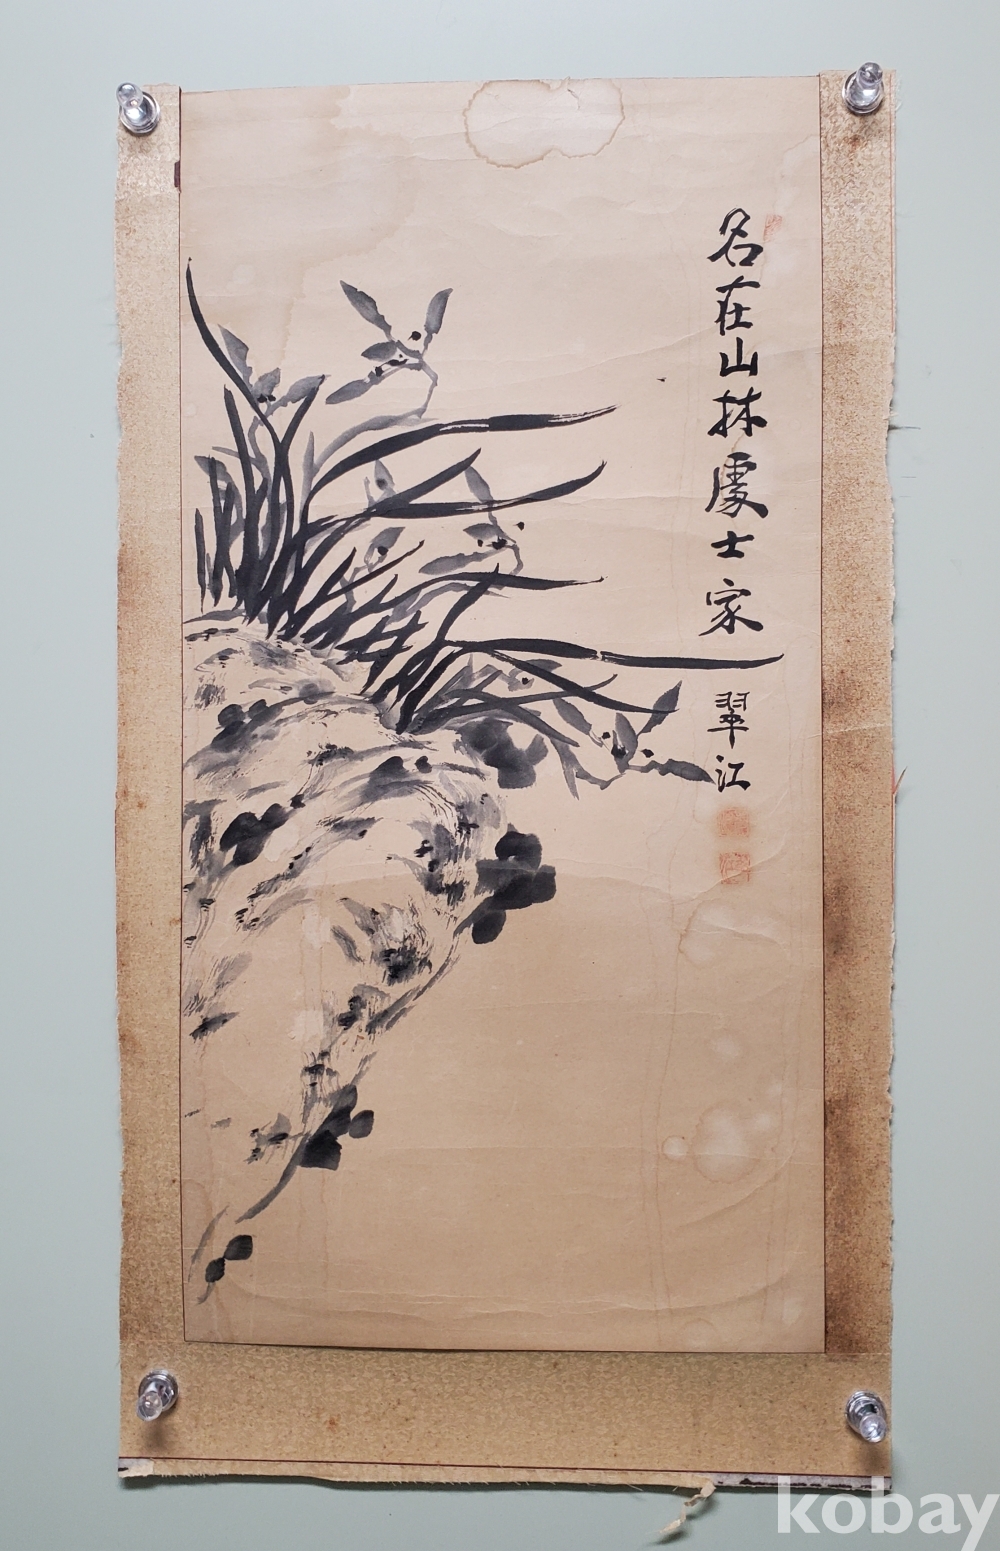 名在山林處士家
翠江
kobay